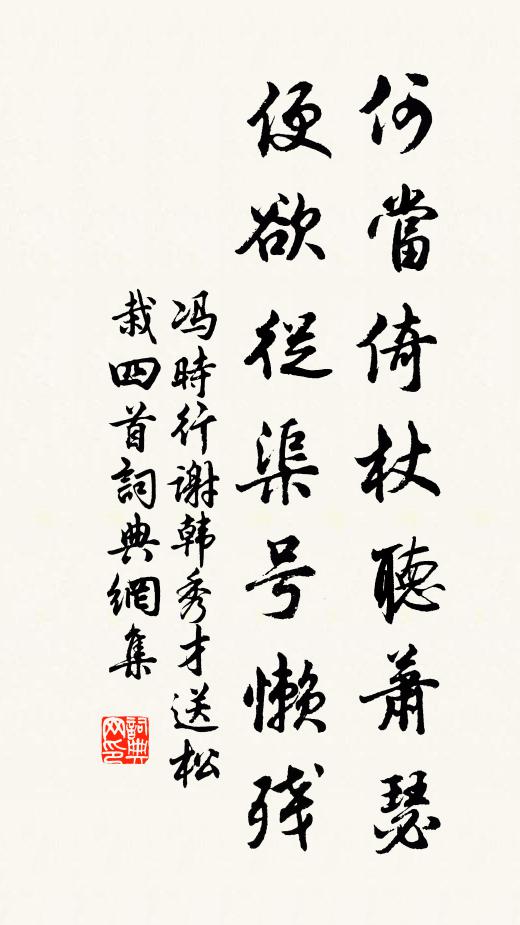 何當倚杖聽蕭瑟
便欲從渠号懶残
冯時行谢韩秀才送松
栽四首詞典網集
詞典
网印